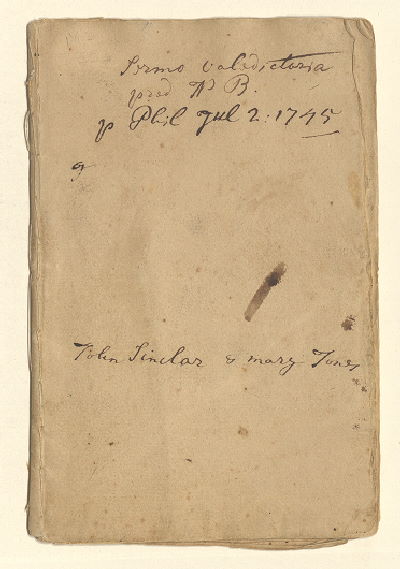 Sermo valedictoria
pred
B.
p Phil Jul 2: 1745
John Sinclar & mary Jones